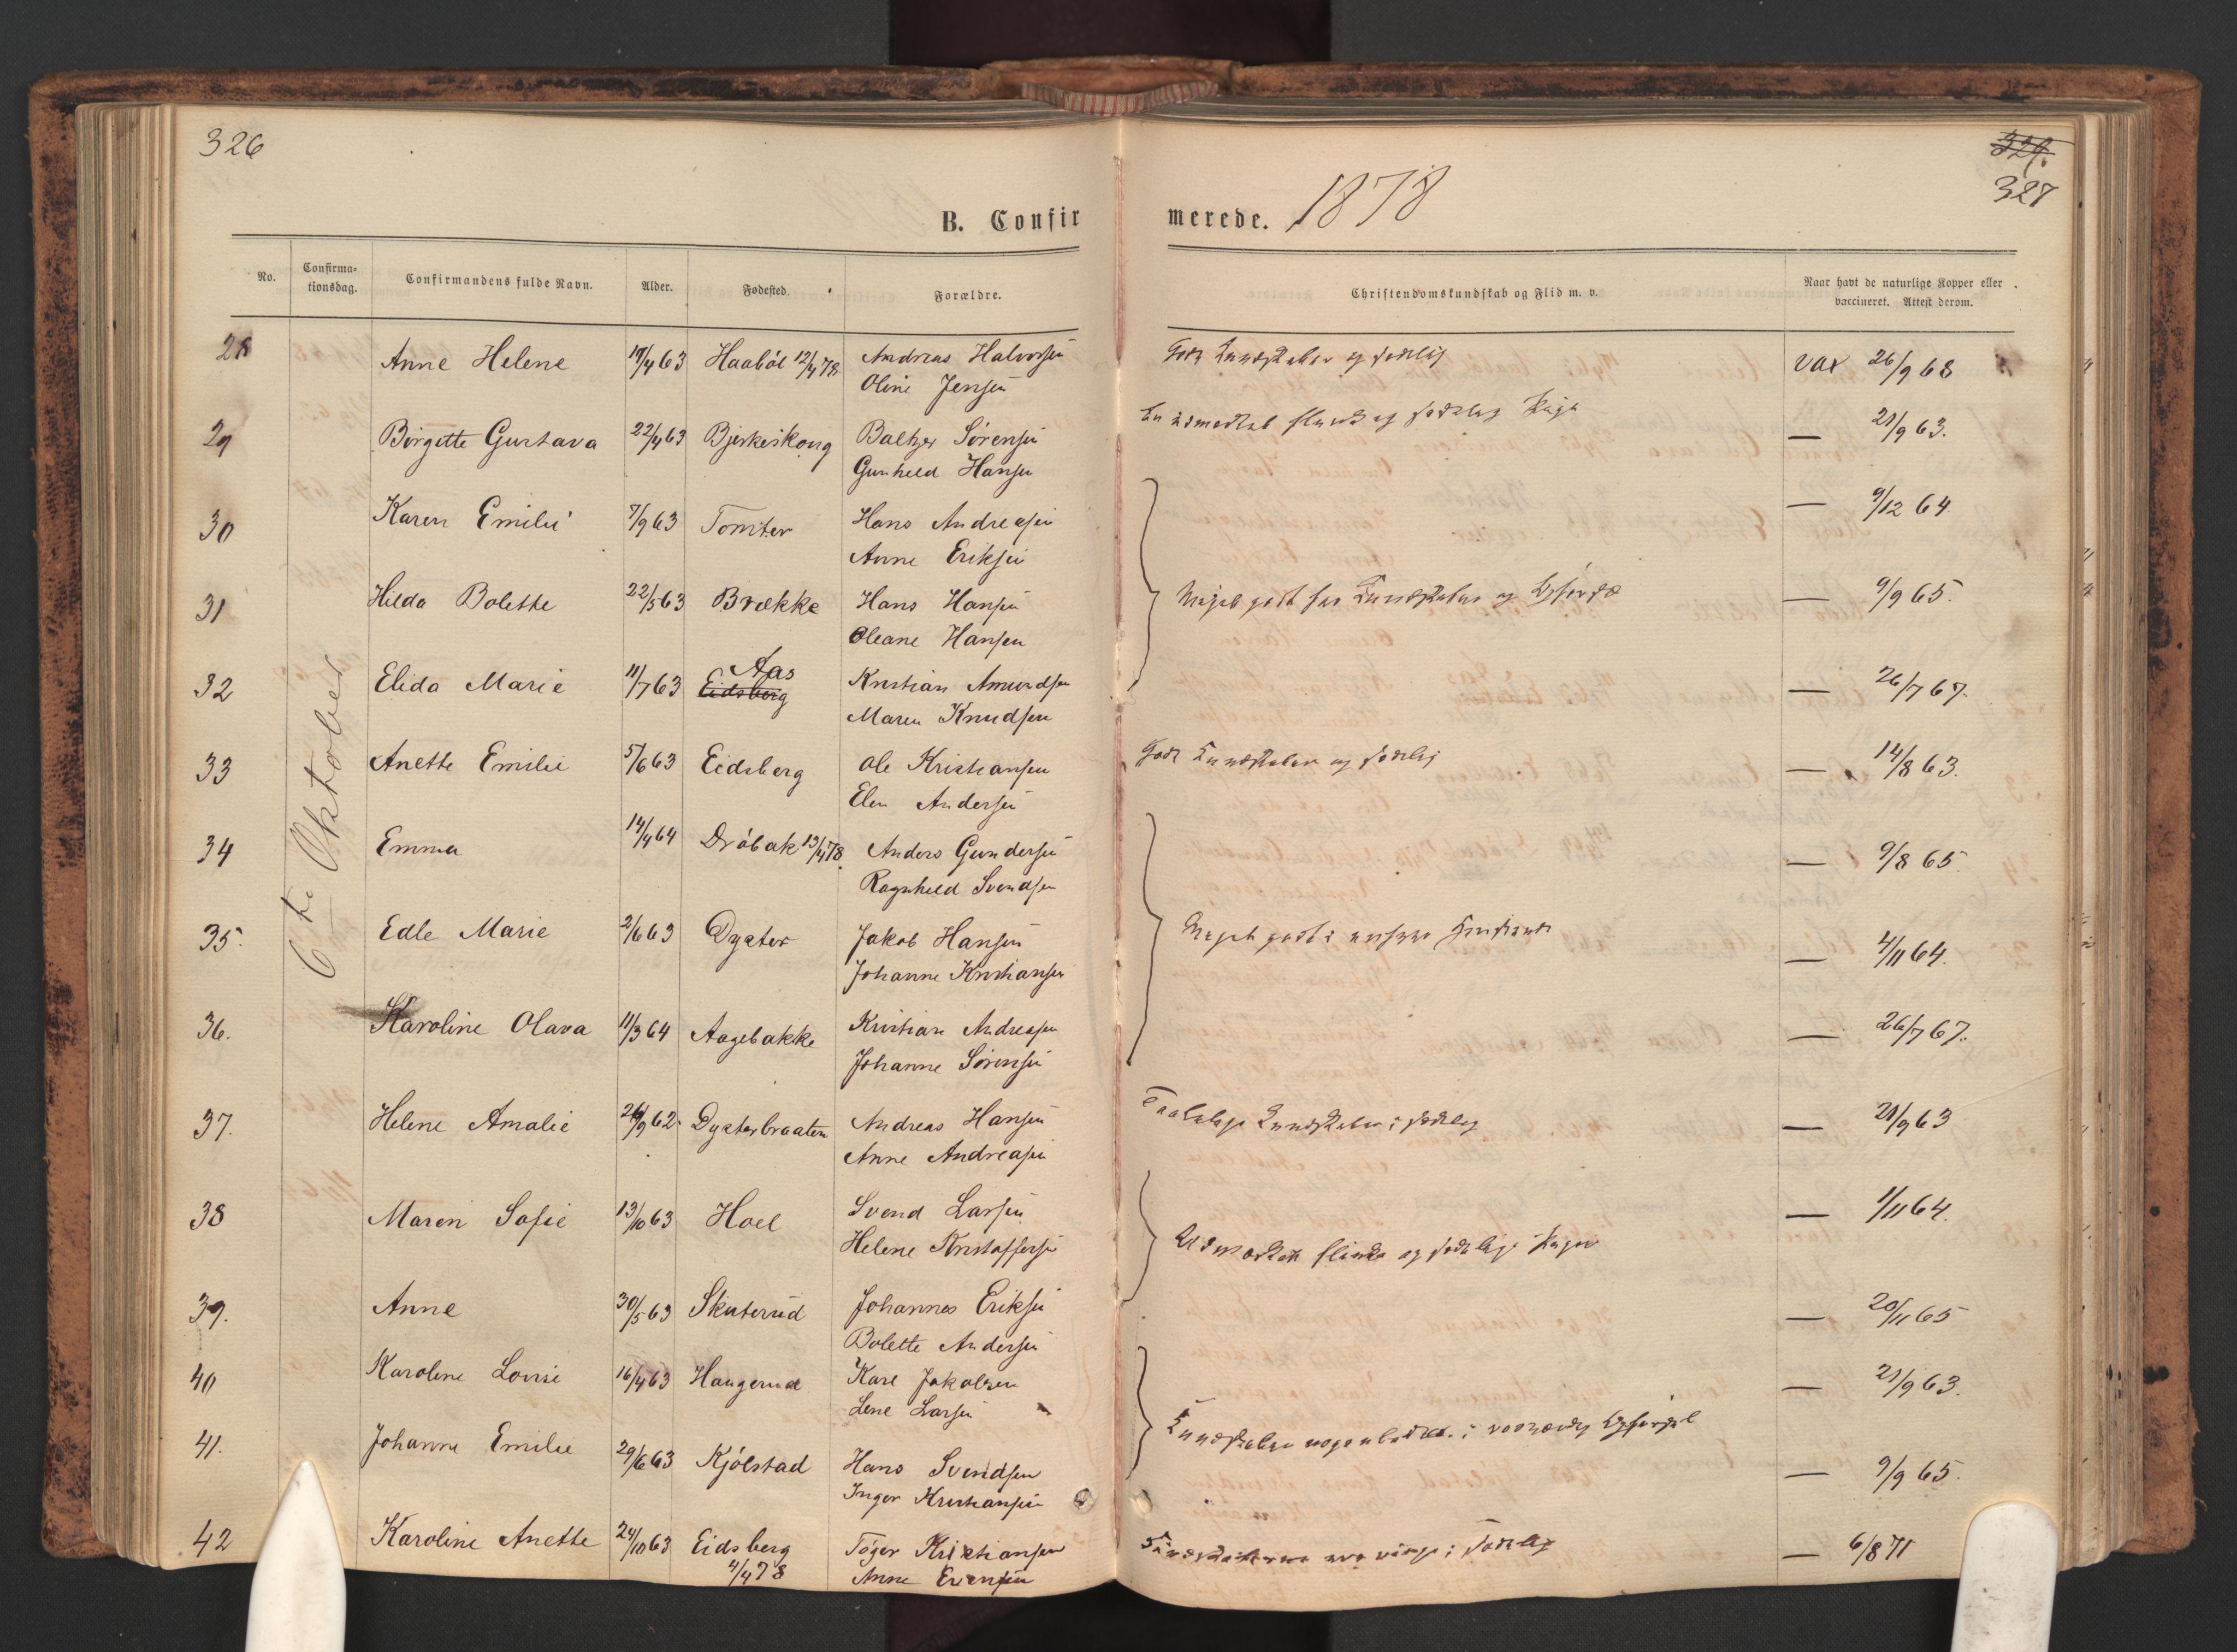 326
B. Confir
No. Confirma-tionsdag. Confirmandens fulde Navn. Alder. Fødested. Forældre.
28 Anne Helene 17/4 63 Haabøl 12/4 78 Andreas Halvorsen
Oline Jensen
29 Birgitte Gustava 22/4 63 Bjerkeskoug Baltzer Sørensen
Gunhild Hansen
30 Karen Emilie 7/9 63 Tomter Hans Andreasen
Anne Eriksen
31 Hilda Bolette 22/5 63 Brække Hans Hansen
Oleane Hansen
32 Elida Marie 11/7 63 Aas Eidsberg Kristian Amundsen
Maren Knudsen
6te Oktober
33 Anette Emilie 5/6 63 Eidsberg Ole Kristiansen
Elen Andersen
34 Emma 14/4 64 Drøbak 13/4 78. Anders Gundersen
Ragnhild Svendsen
35. Edle Marie 2/6 63 Dyster Jakob Hansen
Johanne Kristiansen
36. Karoline Olava 11/3 64 Aagebakke Kristian Andreasen
Johanne Sørensen
37. Helene Amalie 62. Dysterbraaten Andreas Hansen
Anne Andreasen
38 Maren Sofie 13/10 63 Hoel Svend Larsen
Helene Kristoffersen
39. Anne 30/5 63 Skuterud Johannes Eriksen
Bolette Andersen
40 Karoline Lovise 16/4 63 Haugerud Karl Jakobsen
Lene Larsen
41. Johanne Emilie 29/6 63 Kjølstad Hans Svendsen
Inger Kristiansen
42 Karoline Anette 24/10 63 Eidsberg Tøger Kristiansen
4/4 78 Anne Evensen
327
merede. 1878
Christendomskundskab og Flid m. v. Naar havt de naturlige Kopper eller
vaccineret. Attest derom.
Gode Kundskaber og sædelig vax 26/9 68
En udmærket flink og sædelig Pige — 21/9 63.
— 9/12 64
Meget godt for Kundskaber og Opførsel — 9/9 65.
— 26/7 67.
Gode Kundskaber og sædelig — 14/8 63.
— 9/8 65
Meget godt i enhver Henseende
— 4/11 64.
— 26/7 67.
Taalelige Kundskaber; sædelig — 21/9 63
— 1/11 64.
Udmærket flinke og sædelige Piger
— 20/11 65
— 21/9 63.
Kundskaber; Opførsel
— 9/9 65.
Kundskaberne ere ringe; sædelig — 6/8 71